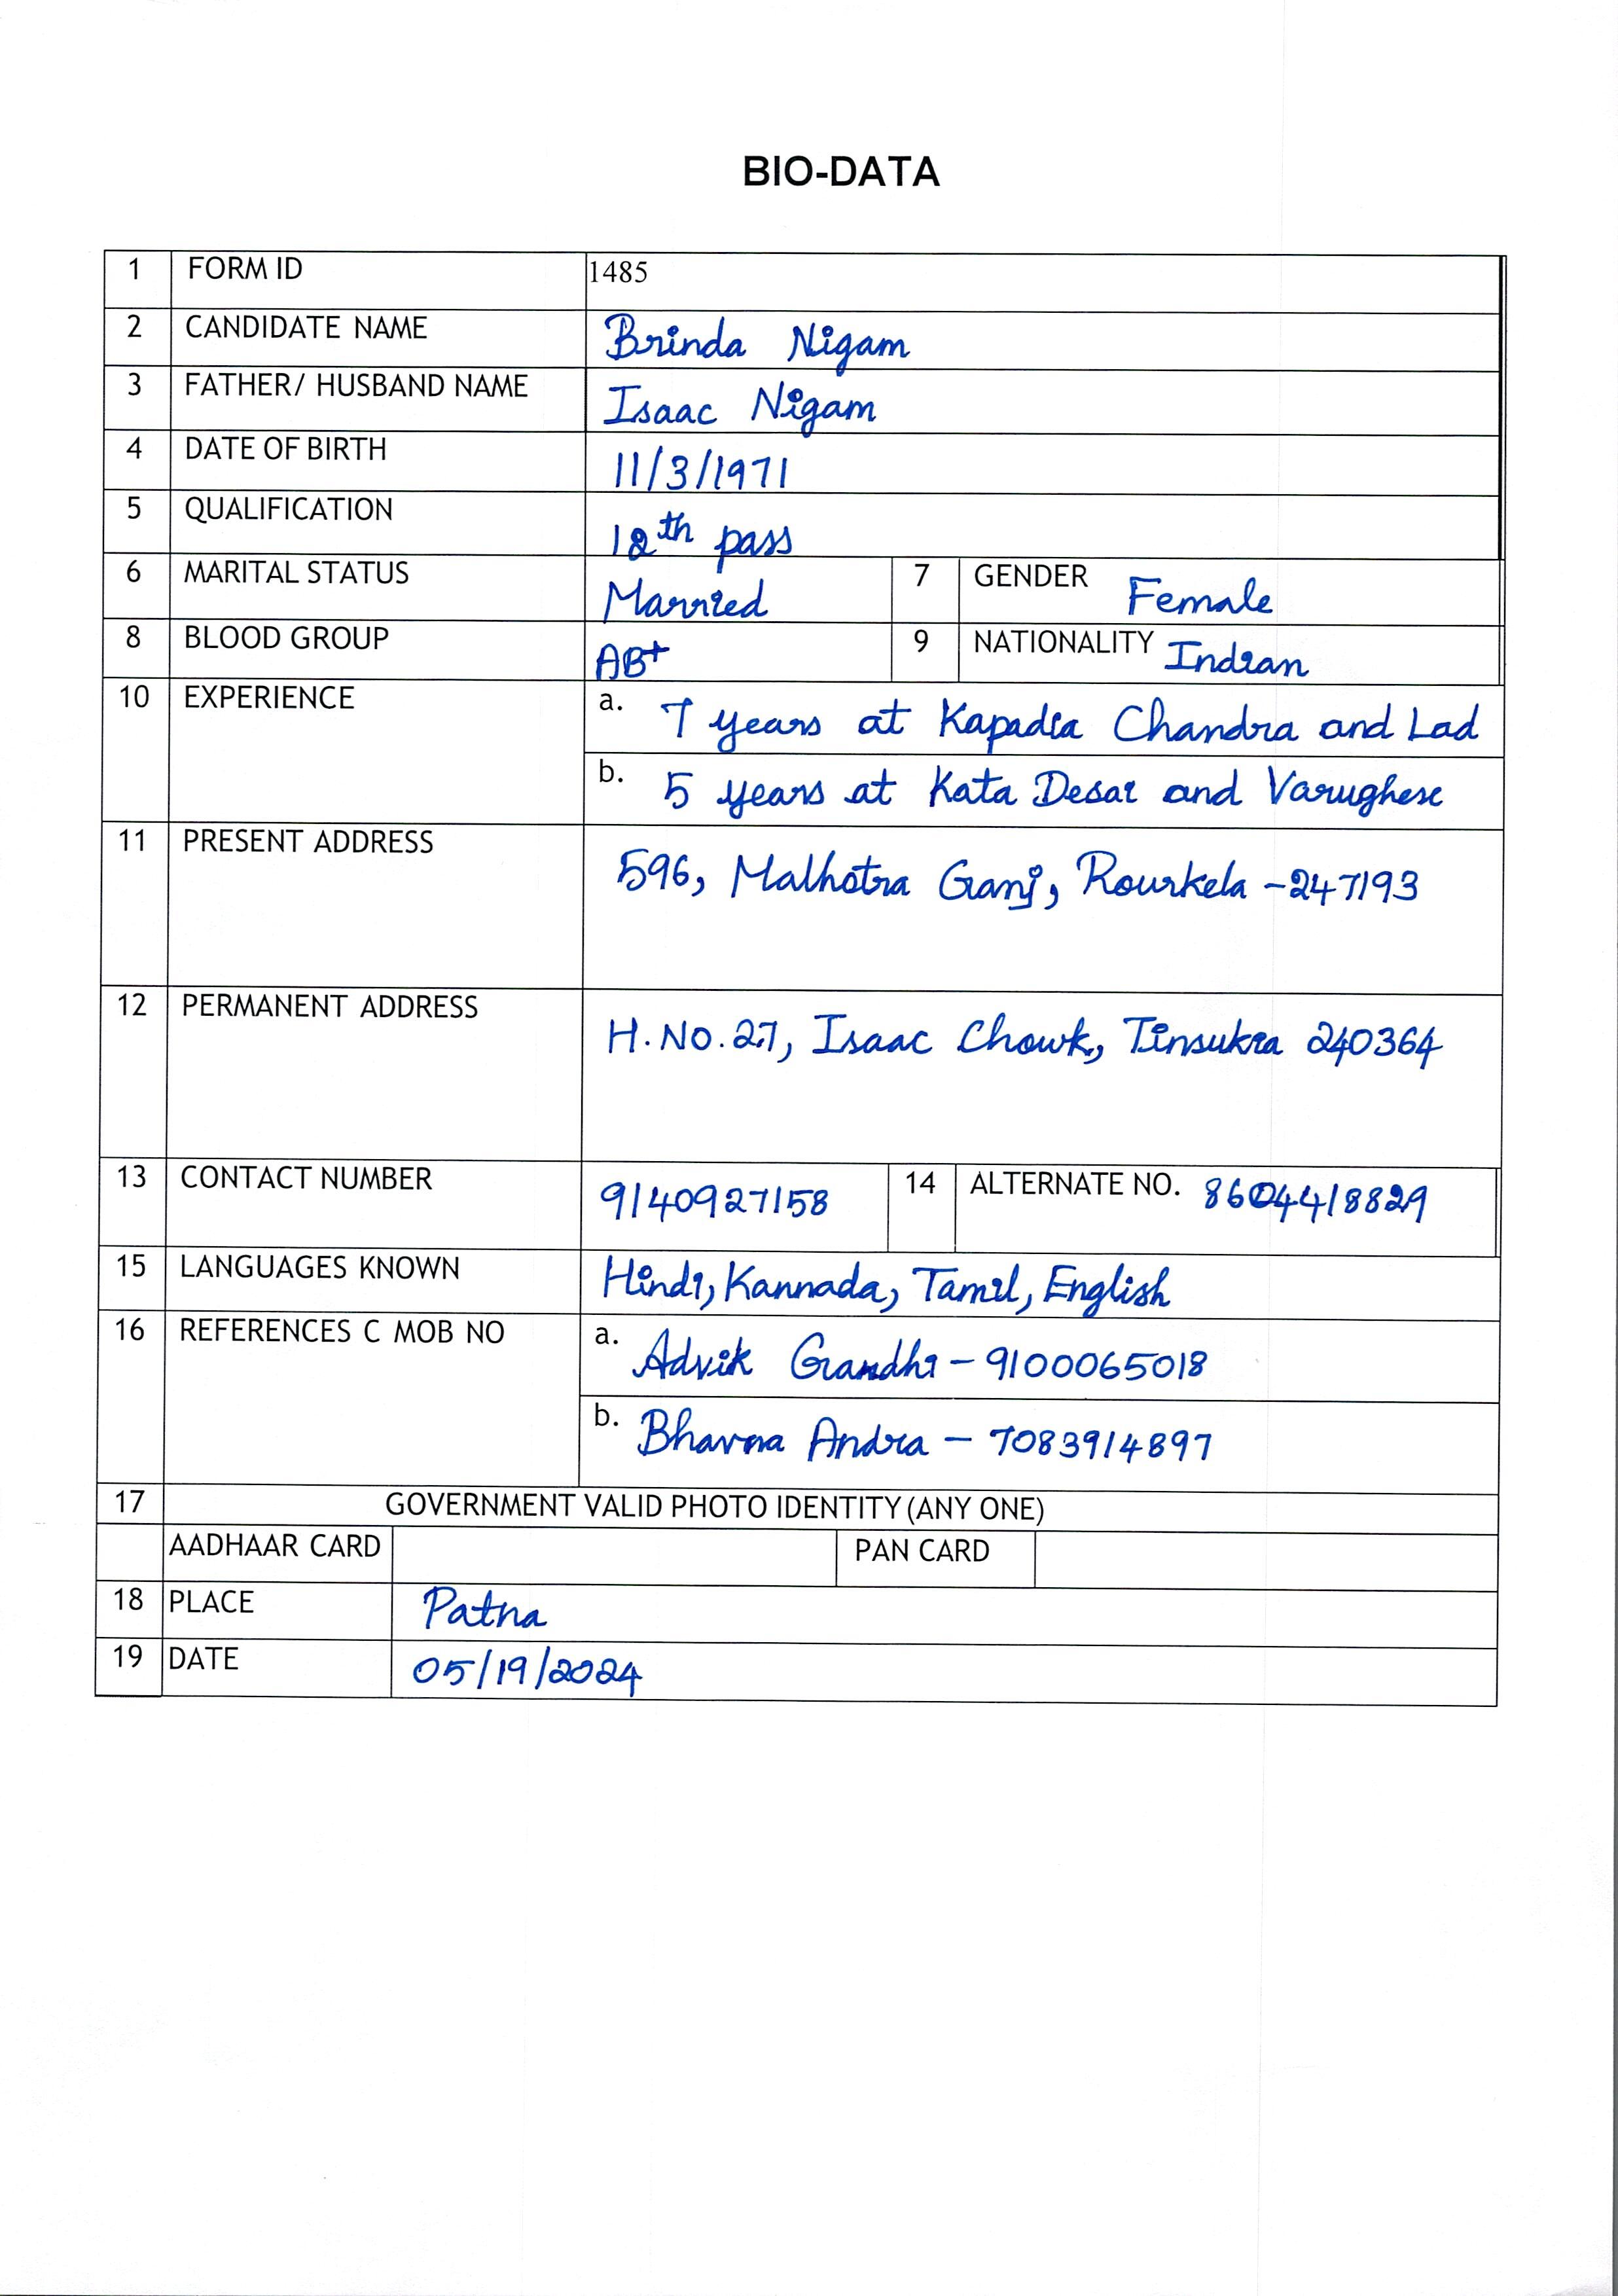 BIO-DATA
1 FORM ID 1485
2 CANDIDATE NAME Brinda Nigam
3 FATHER/ HUSBAND NAME Isaac Nigam
4 DATE OF BIRTH 11/3/1971
5 QUALIFICATION 12th pass
6 MARITAL STATUS Married 7 GENDER Female
8 BLOOD GROUP AB+ 9 NATIONALITY Indian
10 EXPERIENCE a. 7 years at Kapadia Chandra and Lad
b. 5 years at Kata Desai and Varughese
11 PRESENT ADDRESS 596, Malhotra Ganj, Rourkela -247193
12 PERMANENT ADDRESS H.NO.27, Isaac Chowk, Tinsukia 240364
13 CONTACT NUMBER 9140927158 14 ALTERNATE NO. 8604418829
15 LANGUAGES KNOWN Hindi, Kannada, Tamil, English
16 REFERENCES C MOB NO a. Advik Gandhi - 9100065018
b. Bhavna Andra - 7083914897
17 GOVERNMENT VALID PHOTO IDENTITY (ANY ONE)
AADHAAR CARD PAN CARD
18 PLACE Patna
19 DATE 05/19/2024